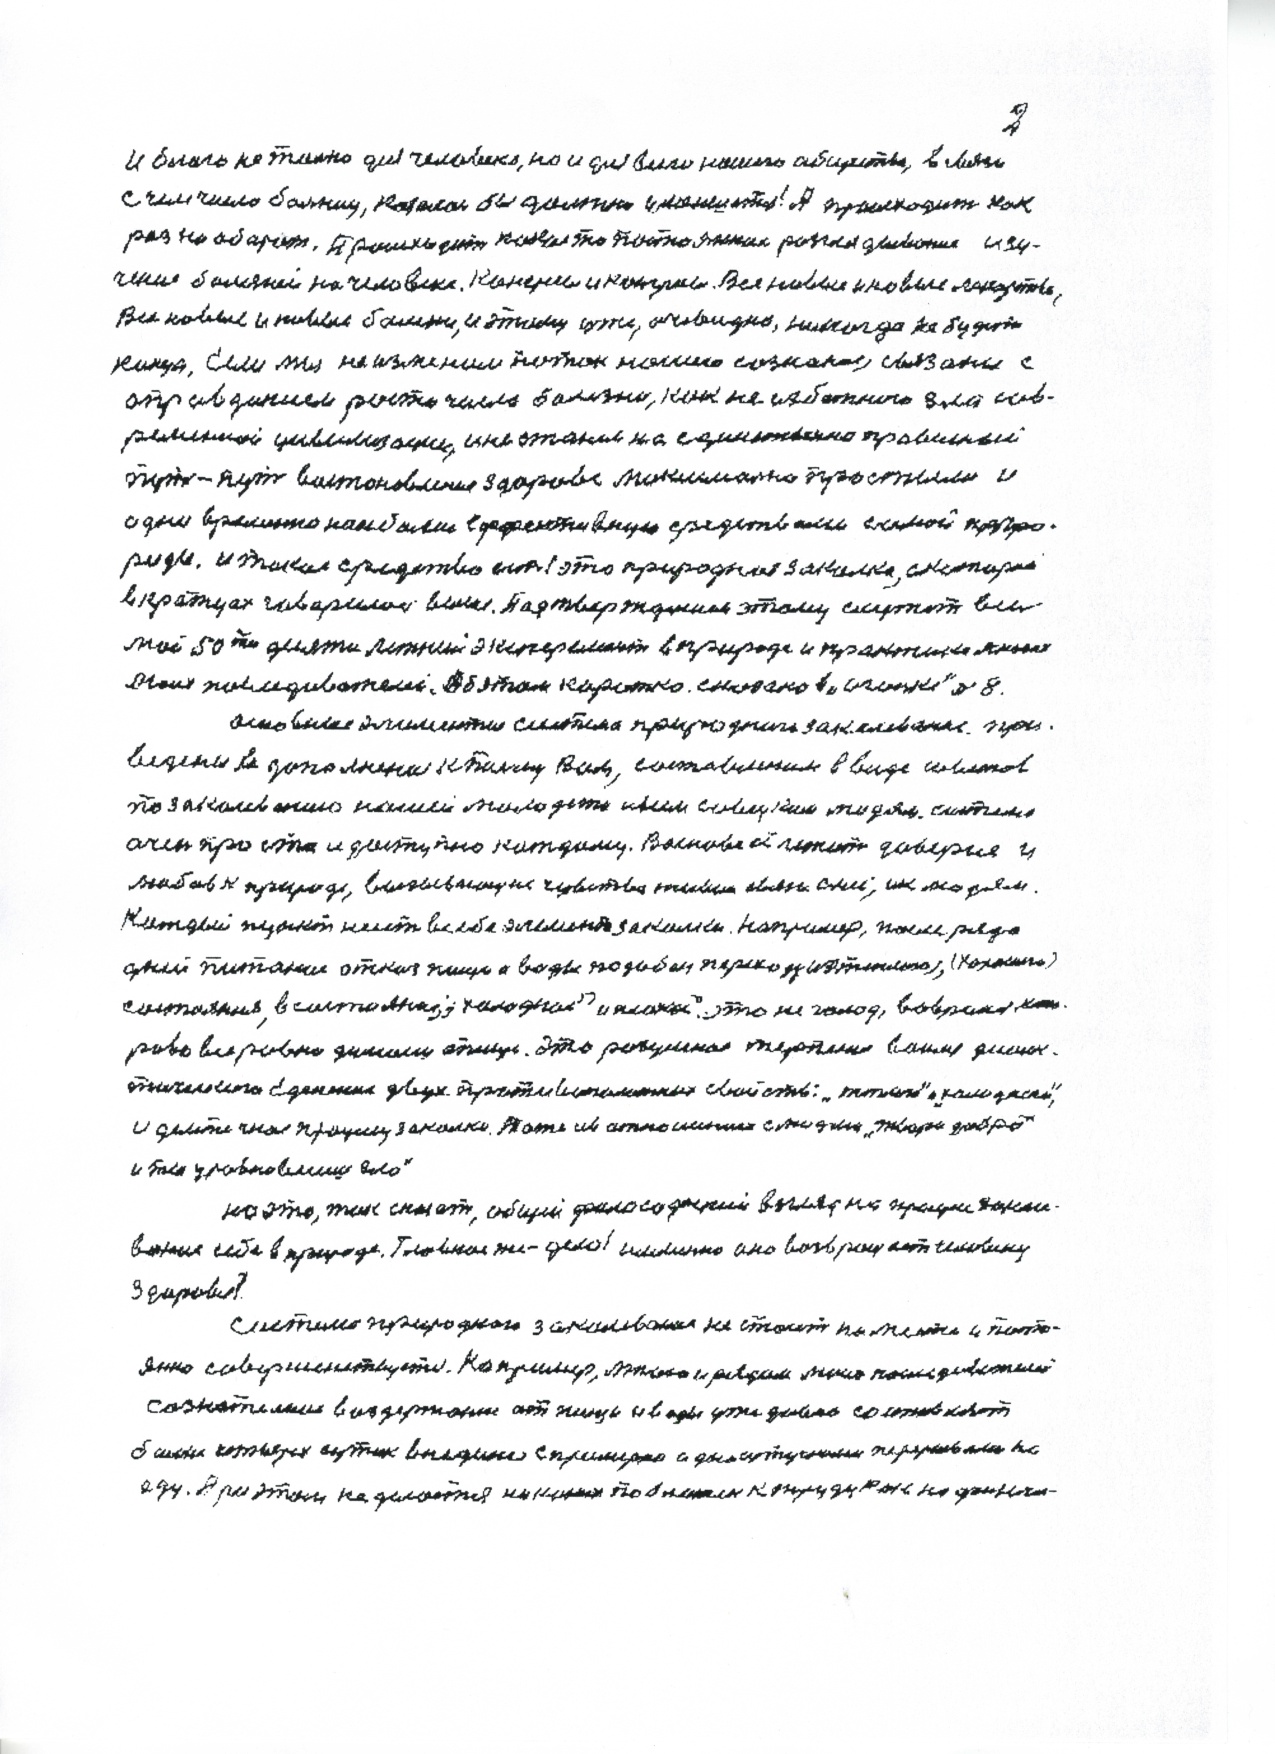 2
и благо не только для человека, но и для всего нашего общества, в связи
с чем число больниц, казалось бы должно уменьшится! А происходит как
раз на оборот. Происходит какое то постоянное разглядывание изу-
чение болезней на человеке. Все новые и новые лекарства,
Все новые и новые болезни, и этому уже, очевидно, никогда не будет
конца, Если мы не изменим поток нашего сознания связаны с
оправданием роста числа болезни, как не избежного зла сов-
ременной цивилизации, и не станем на единственно правильный
путь – путь востоновления здоровье максимально простыми и
одно времено наиболее еффективную средствами самой приро-
роды. и такое средство есть! это природная закалка, о которой
вкратцах говарилось выше. Подтверждение этому служит весь
мой 50ти десяти летний эксперемент в природе и практика многих
моих последователей. Об этом коротко сказано в „огоньке" № 8.
основные элименты системы природного закаливание при-
ведены в дополнении к письму Вам, составленым в виде советов
по закаливанию нашей молодежи и всем советским людям. система
очен проста и доступно каждому. В основе её лежит доверия и
любов к природе, вызывающие чувства живой связи с ней, и к людям.
Каждый пункт несет в себе элемент закалки. Например, после ряда
дней питание отказ пищи и воды подобен переходу из теплого, (хорошего)
состояния, в состояние „холодное" и плохое". это не голод, во время кото-
рово все ровно думаеш о пище. Это разумное терпение во имя диалек-
тического единения двух противоположных свойств: „теплой" и „холодной",
и делтечное процесу закалки. Тоже и в отношение с людьми „твори добро"
и тем уравновешиш зло"
но это, так сказат, общий философский взгляд на процес закали-
вания себя в природе. Главное же – дело! именно оно возвращает человеку
Здоровье!
Система природного закаливания не стоит на месте и посто-
янно совершенствуется. Например, много и рядом моих последователей
сознательное воздержание от пищи и воды уже давно составляет
более четырех суток в неделю с примерно односуточными перерывами на
еду. При этом не делается никаких поблажек к труду как на физиче-